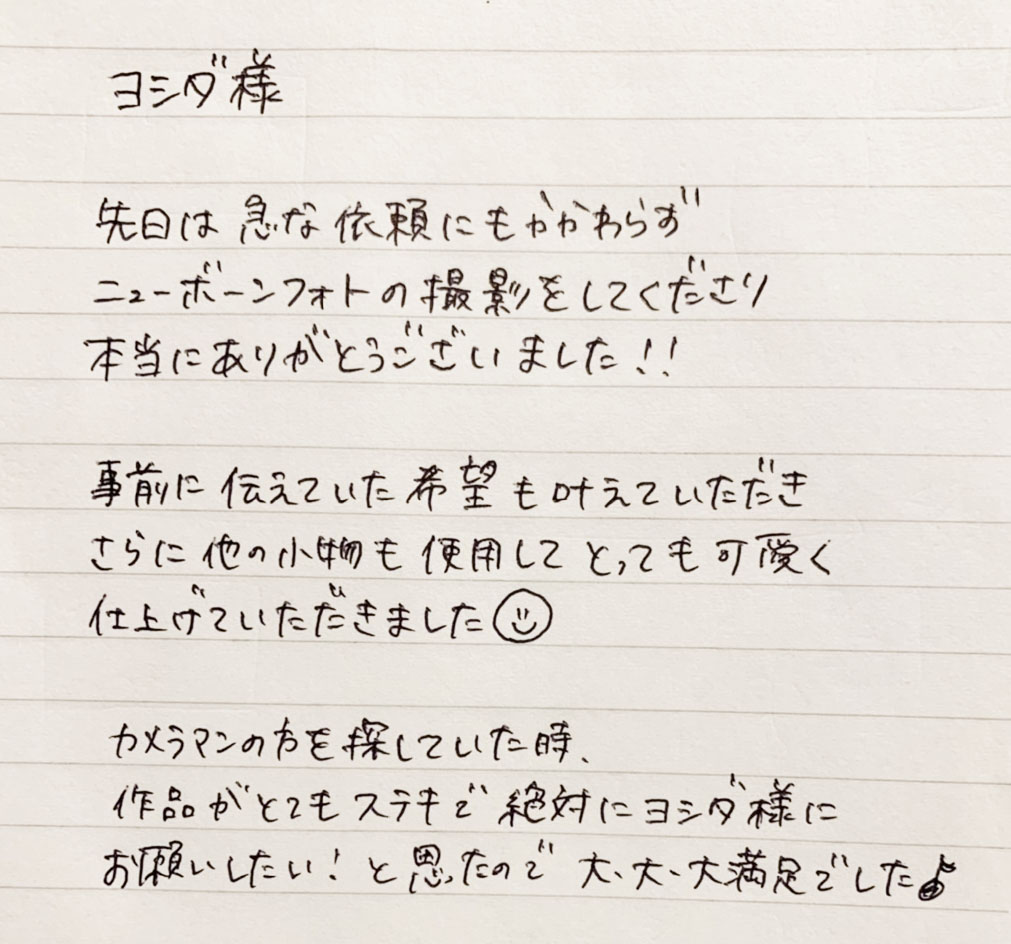 ヨシダ様
先日は急な依頼にもかかわらず
ニューボーンフォトの撮影をしてくださり
本当にありがとうございました!!
事前に伝えていた希望も叶えていただき
さらに他の小物も使用してとっても可愛く
仕上げていただきました☺
カメラマンの方を探していた時、
作品がとてもステキで絶対にヨシダ様に
お願いしたい!と思ったので大、大、大満足でした♪